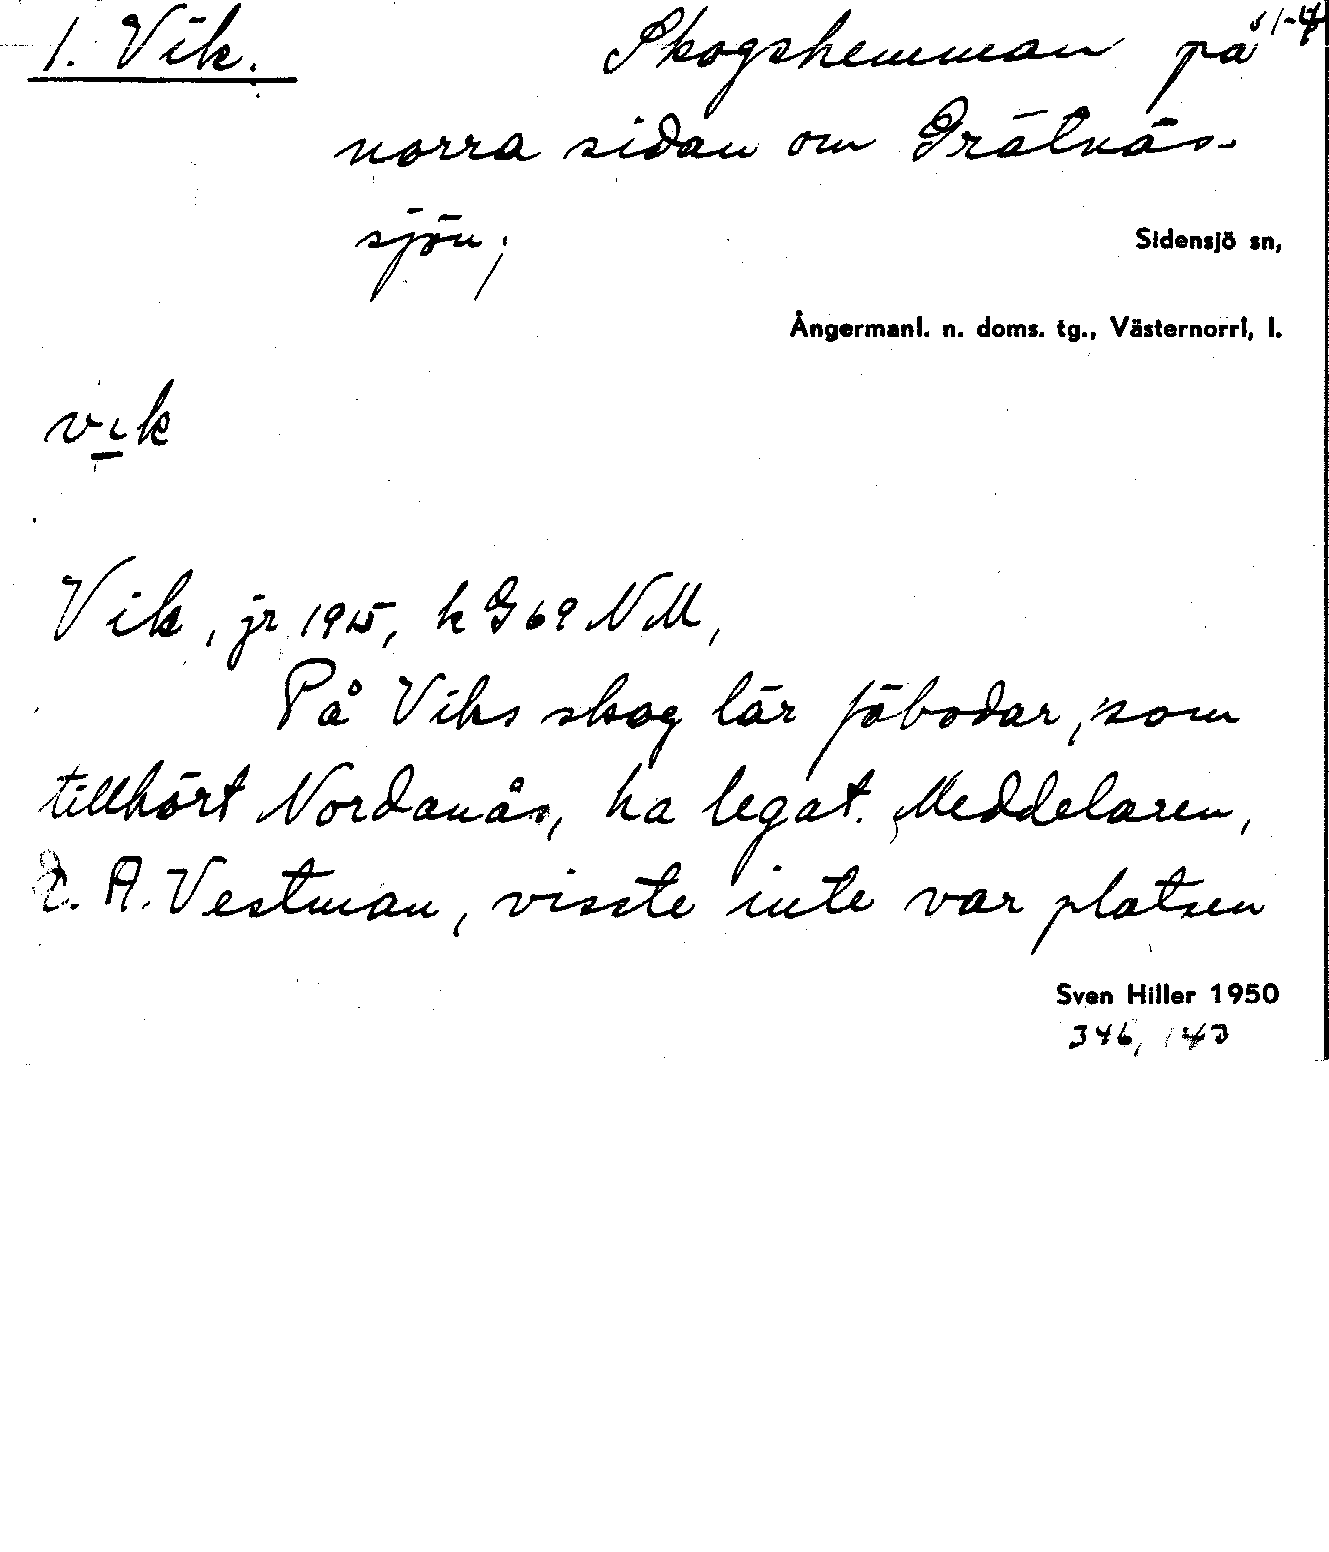 1. Vik. Skogshemman på 1-4
norra sidan om Grätnäs-
sjön;
Sidensjö sn,
Ångermanl. n. doms. tg., Västernorrl, l.
vik
Vik, jr 1915, k G69 NM,
På Viks skog lär fäbodar, som
tillhört Nordanås, ha legat. Meddelaren,
A. Vestman, visste inte var platsen
Sven Hiller 1950
346, 143